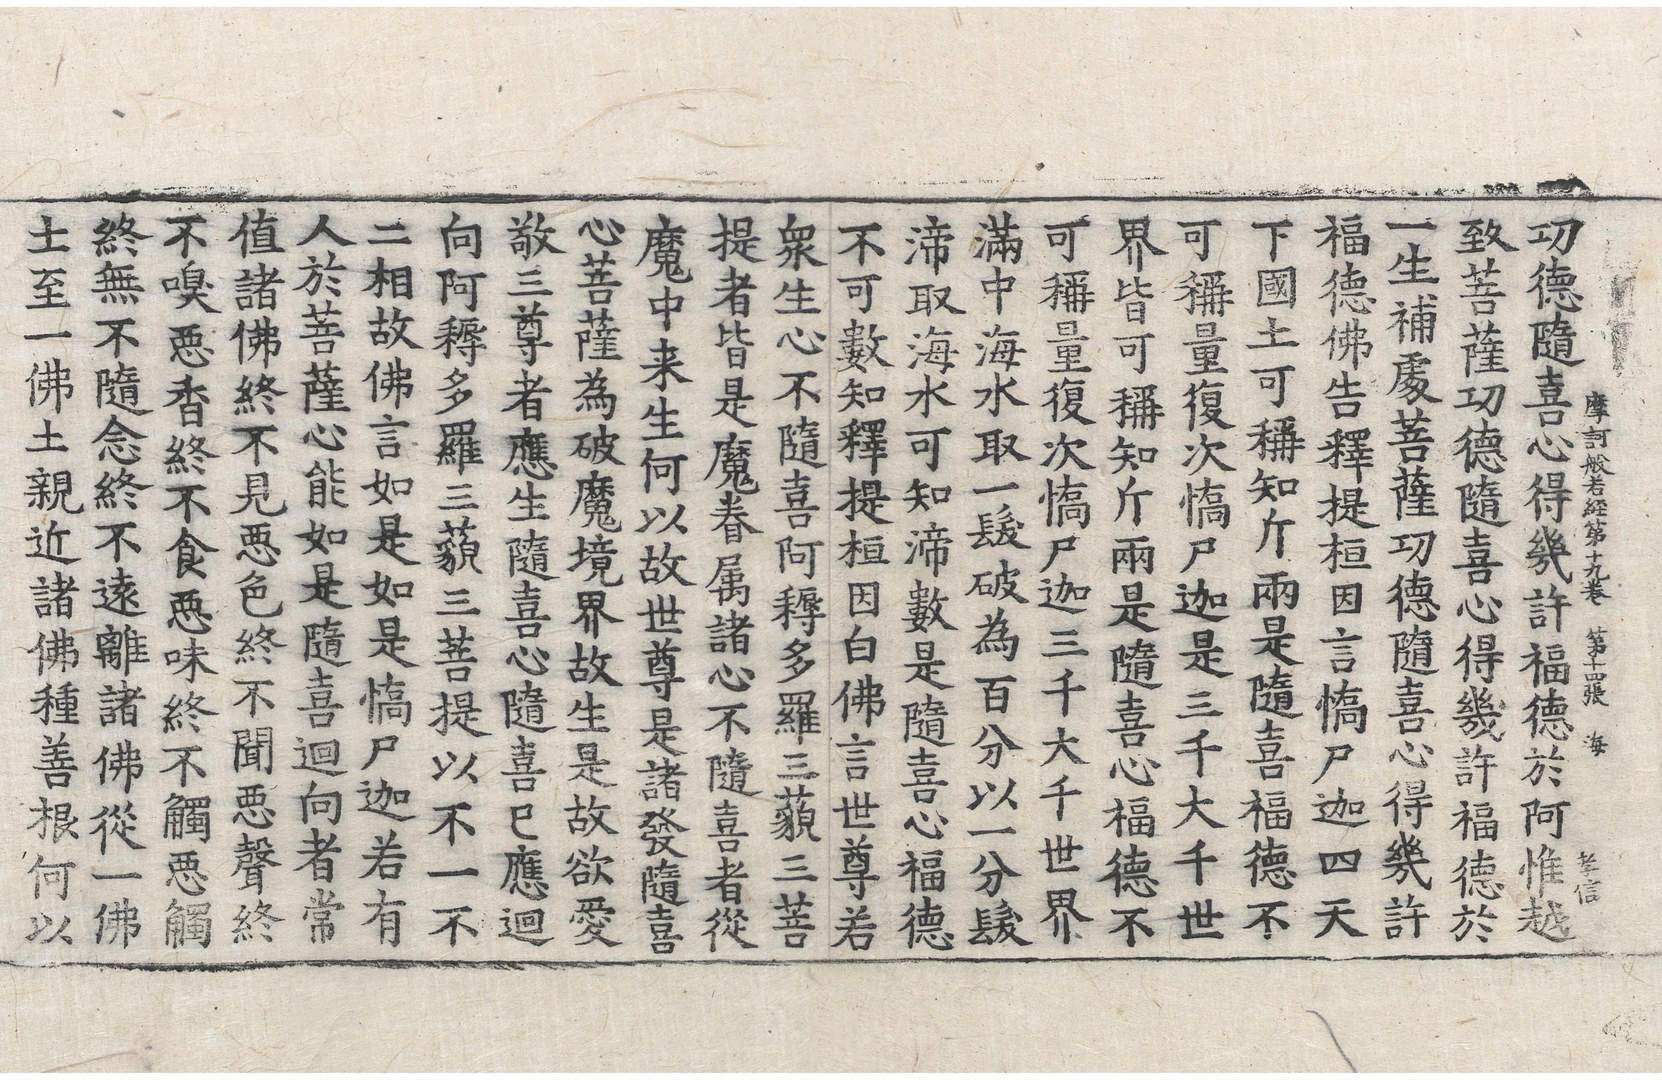 摩訶般若經第十九卷 第十四張 海 孝信
功德隨喜心得幾許福德於阿惟越
致菩薩功德隨喜心得幾許福德於
一生補處菩薩功德隨喜心得幾許
福德佛告釋提桓因言憍尸迦四天
下國土可稱知斤兩是隨喜福德不
可稱量復次憍尸迦是三千大千世
界皆可稱知斤兩是隨喜心福德不
可稱量復次憍尸迦三千大千世界
滿中海水取一髮破為百分以一分髮
渧取海水可知渧數是隨喜心福德
不可數知釋提桓因白佛言世尊若
衆生心不隨喜阿耨多羅三藐三菩
提者皆是魔眷属諸心不隨喜者從
魔中来生何以故世尊是諸發隨喜
心菩薩為破魔境界故生是故欲愛
敬三尊者應生隨喜心隨喜已應迴
向阿耨多羅三藐三菩提以不一不
二相故佛言如是如是憍尸迦若有
人於菩薩心能如是隨喜迴向者常
值諸佛終不見惡色終不聞惡聲終
不嗅惡香終不食惡味終不觸惡觸
終無不隨念終不遠離諸佛從一佛
土至一佛土親近諸佛種善根何以